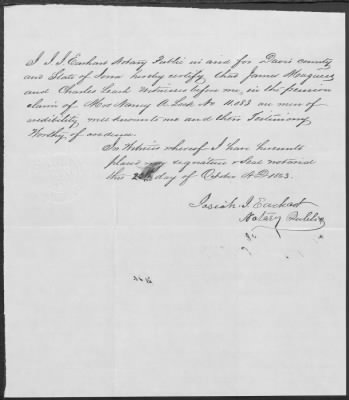 I J. I. Earhart Notary Public in and for Davis county
and State of Iowa hereby certify, that James
and Charles Leach Witnesses before me, in the pension
claim of Mrs Nancy A. Lock No 11.083 are men of
credibility, well known to me and their Testimony
Worthy of credence.
In Witness whereof I have hereunto
place my signature & Seal notarial
this day of October A.D. 1863.
Josiah I. Earhart
Notary Public